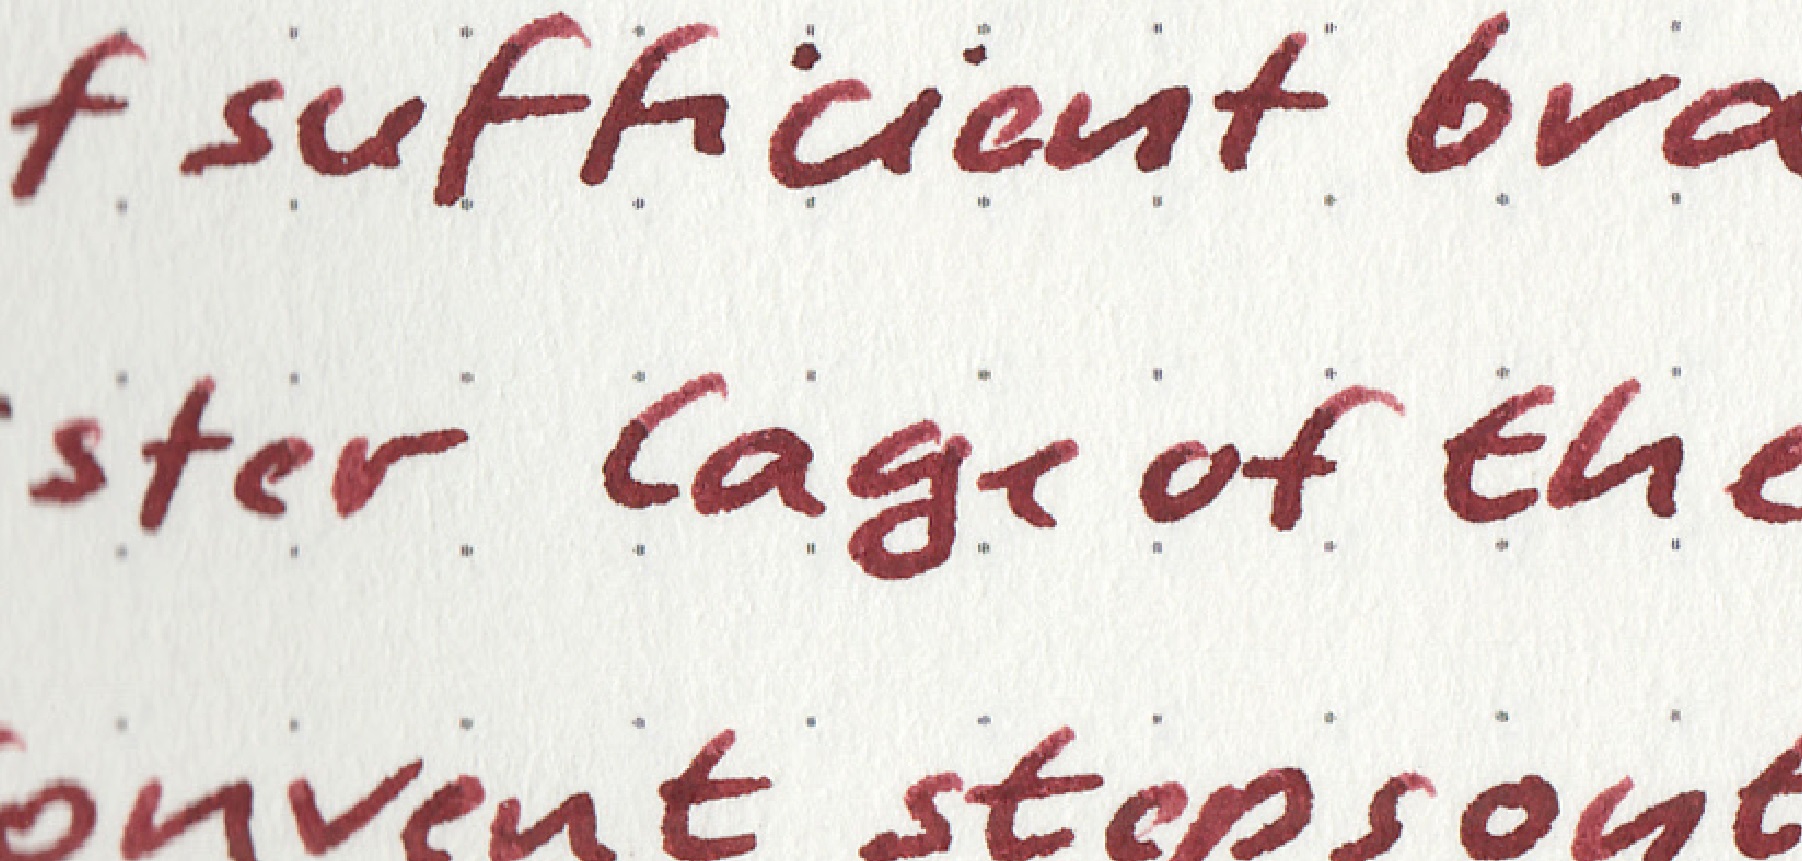 f sufficient bra
ister Cage of the
onvent steps ont